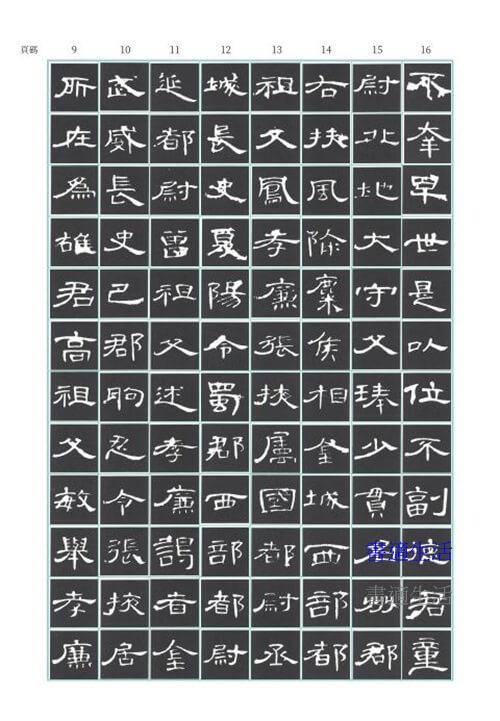 頁碼 9 10 11 12 13 14 15 16
所在為雄君高祖父敏舉孝廉
武威長史巴郡朐忍令張掖居
延都尉曾祖父述孝廉謁者金
城長史夏陽令蜀郡西部都尉
祖父鳳孝廉張掖屬國都尉丞
右扶風隃麋侯相金城西部都
尉北地大守父琫少貫名州郡
不幸早世是以位不副德君童
書適生活
書適生活